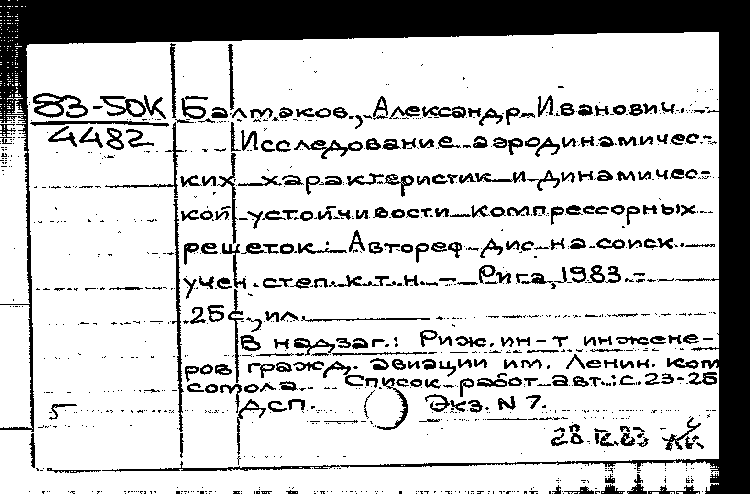 83-50К Балтаков, Александр Иванович.
4482
Исследование аэродинамичес-
ких характеристик и динамичес-
кой устойчивости компрессорных
решеток: Автореф дис на соиск
учен. степ. к. т. н. - Рига, 1983. -
25с., ил.
В надзаг.: Риж. ин-т инжене-
ров гражд. авиации им. Ленин. ком
сомола. Список работ авт.: с. 23-25
5 ДСП. Экз. N 7.
28.IX.83